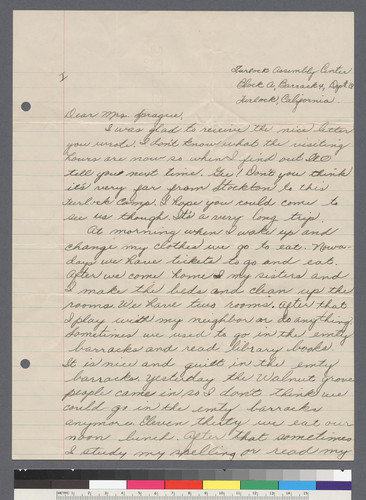 1
Turlock Assembly Center
Block A, Barrack 4, Dept.
Turlock, California
Dear Mrs. Sprague,
I was glad to receive the nice letter
you wrod. I don't know what the visiting
hours are now so when I find out I'll
tell you next time. Gee! Don't you think
it's very far from Stockton to this
Turlock Camp. I hope you could come to
see us though. It's a very long trip.
At morning when I wake up and
change my clothes we go to eat. Nowa-
days we have tickets to go and eat.
After we come home I my sisters and
I make the beds and clean up the
rooms. We have two rooms. After that
I play with my neighbor or do anything.
Sometimes we used to go in the emty
barracks and read library books.
It is nice and quiet in the emty
barracks. Yesterday the Walnut grove
people came in so I don't think we
could go in the emty barracks
anymore. Eleven thirty we eat our
noon lunch. After that sometimes
I study my spelling or read my